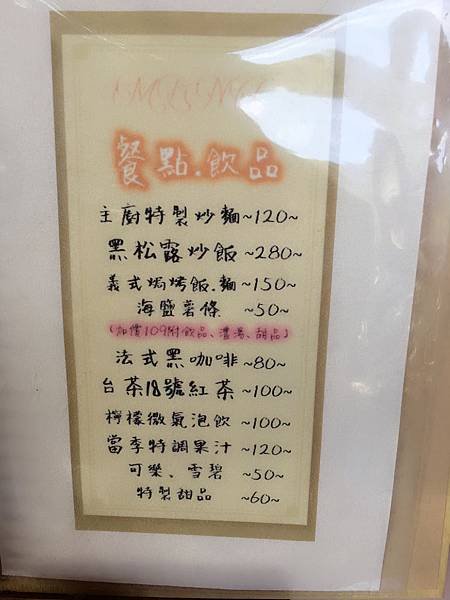 餐點.飲品
主廚特製炒麵~120~
黑松露炒飯~280~
義式焗烤飯.麵~150~
海鹽薯條 ~50~
(加價109附飲品、濃湯、甜品)
法式黑咖啡~80~
台茶18號紅茶~100~
檸檬微氣泡飲~100~
當季特調果汁~120~
可樂、雪碧 ~50~
特製甜品 ~60~